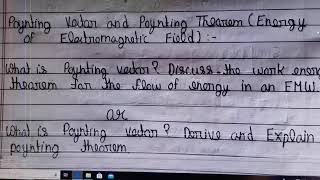 Poynting Vector and Poynting Theorem (Energy
of Electromagnetic Field):-
What is Poynting vector? Discuss the work ener
theorem for the flow of energy in an EMW.
OR
What is Poynting vector? Derive and Explain
poynting theorem